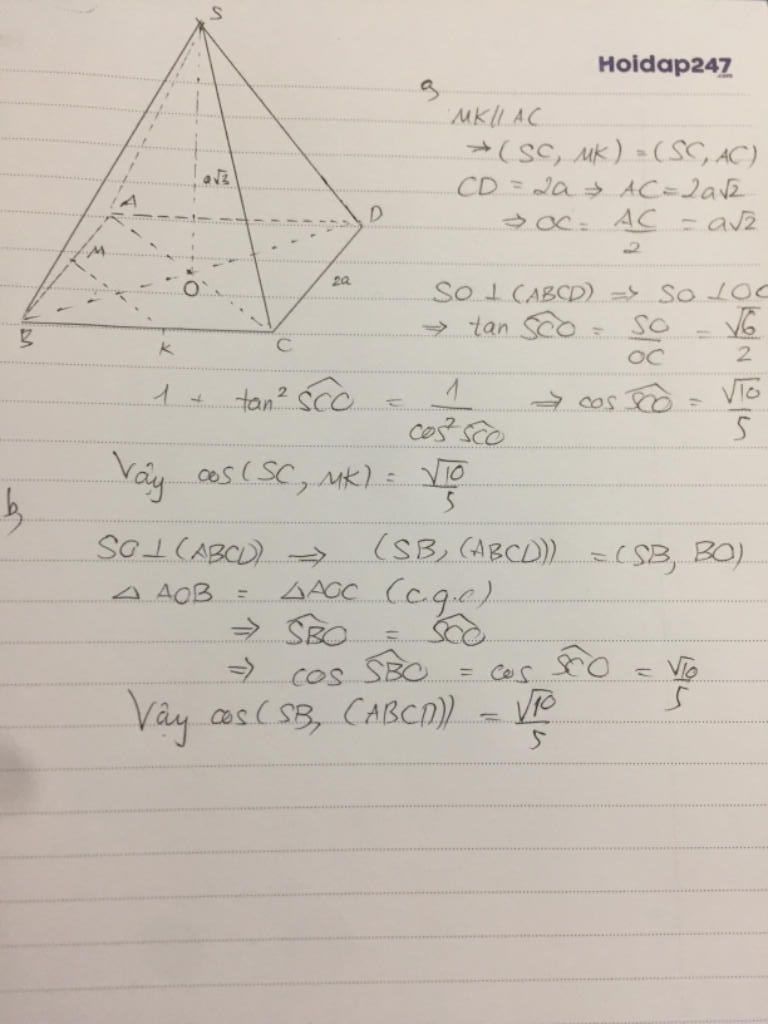 S
Hoidap247
.com
a)
MK // AC
→ (SC, MK) = (SC, AC)
a√3
CD = 2a ⇒ AC = 2a√2
A
D
⇒ OC = AC/2 = a√2
M
O
2a
SO ⊥ (ABCD) ⇒ SO ⊥ OC
B
K
C
⇒ tan SCO^ = SO/OC = √6/2
1 + tan² SCO^ = 1/cos² SCO^ ⇒ cos SCO^ = √10/5
Vậy cos(SC, MK) = √10/5
b)
SO ⊥ (ABCD) ⇒ (SB, (ABCD)) = (SB, BO)
△ AOB = △AOC (c.g.c)
⇒ SBO^ = SCO^
⇒ cos SBO^ = cos SCO^ = √10/5
Vậy cos(SB, (ABCD)) = √10/5